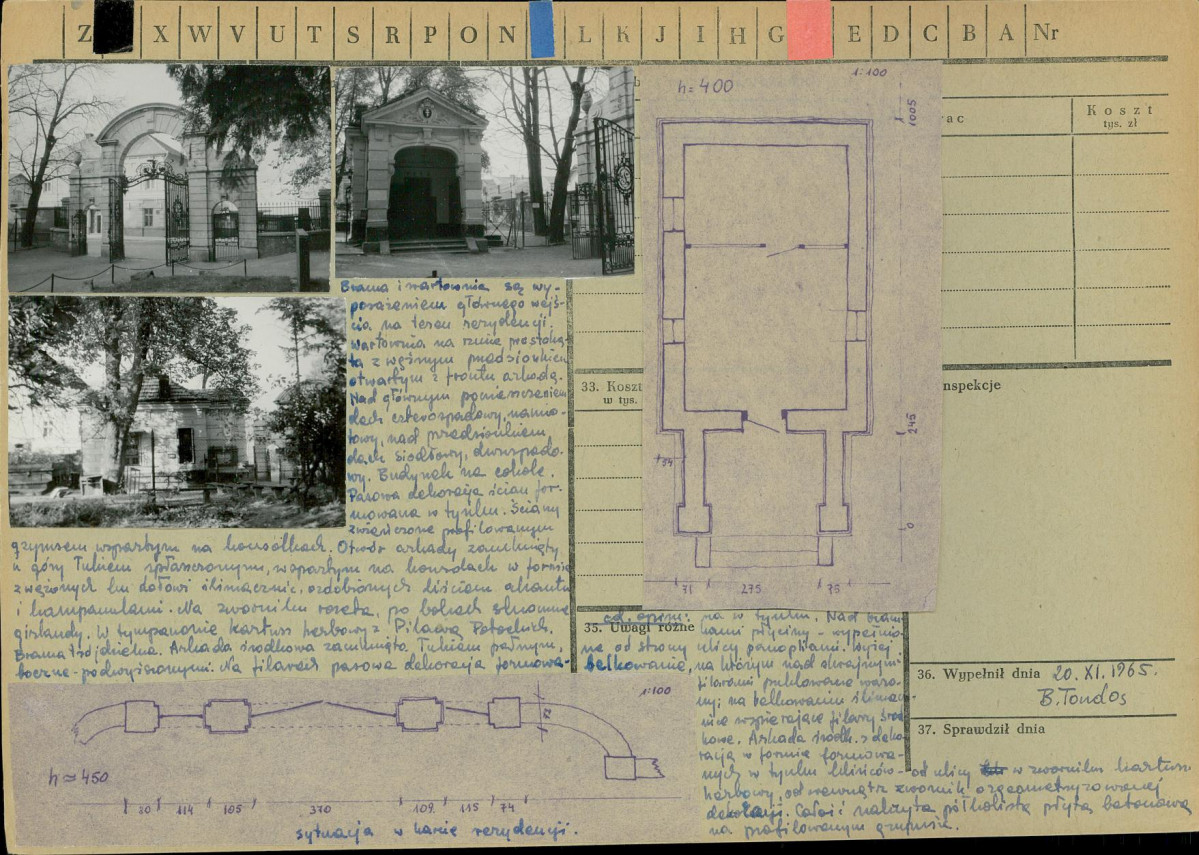 Z X W V U T S R P O N L K J I H G E D C B A Nr
h = 400
1:100
1005
245
0
34
71 275 75
rac
Koszt
tys. zł
33. Koszt
w tys.
nspekcje
Brama i wartownia są wy-
posażeniem głównego wejś-
cia na teren rezydencji.
Wartownia na rzucie prostoką-
ta z węższym przedsionkiem
otwartym z frontu arkadą.
Nad głównym pomieszczeniem
dach czterospadowy, namio-
towy, nad przedsionkiem
dach siodłowy, dwuspado-
wy. Budynek na cokole.
Pasowa dekoracja ścian for-
mowana w tynku. Ściany
zwieńczone profilowanym
gzymsem wspartym na konsolkach. Otwór arkady zamknięty
u góry łukiem spłaszczonym, wspartym na konsolach w formie
zwężonych ku dołowi ślimacznic, ozdobionych liściem akantu
i kampanulami. Na zworniku rozeta, po bokach skromne
girlandy. W tympanonie kartusz herbowy z Pilawą Potockich.
Brama trójdzielna. Arkada środkowa zamknięta łukiem pełnym,
boczne - podwyższonymi. Na filarach pasowa dekoracja formowa-
cd. opisu:
35. Uwagi różne
na w tynku. Nad bram-
kami płyciny - wypełnio-
ne od strony ulicy panopliami. Wyżej
belkowanie, na którym nad skrajnymi
filarami puklowane wazo-
ny; na belkowaniu ślimacz-
nice wspierające filary środ-
kowe. Arkada środk. z deko-
racją w formie formowa-
nych w tynku klińców - od ulicy w zworniku kartusz
herbowy, od wewnątrz zwornik o zgeometryzowanej
dekoracji. Całość nakryta półkolistą płytą betonową
na profilowanym gzymsie.
36. Wypełnił dnia 20. XI. 1965.
B. Tondos
37. Sprawdził dnia
1:100
h ≈ 450
20 114 105 370 109 115 74
sytuacja w karcie rezydencji.